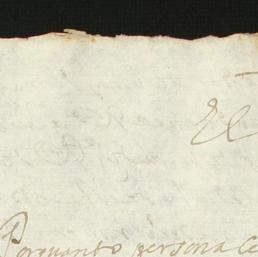 El
Porquanto persona Ce